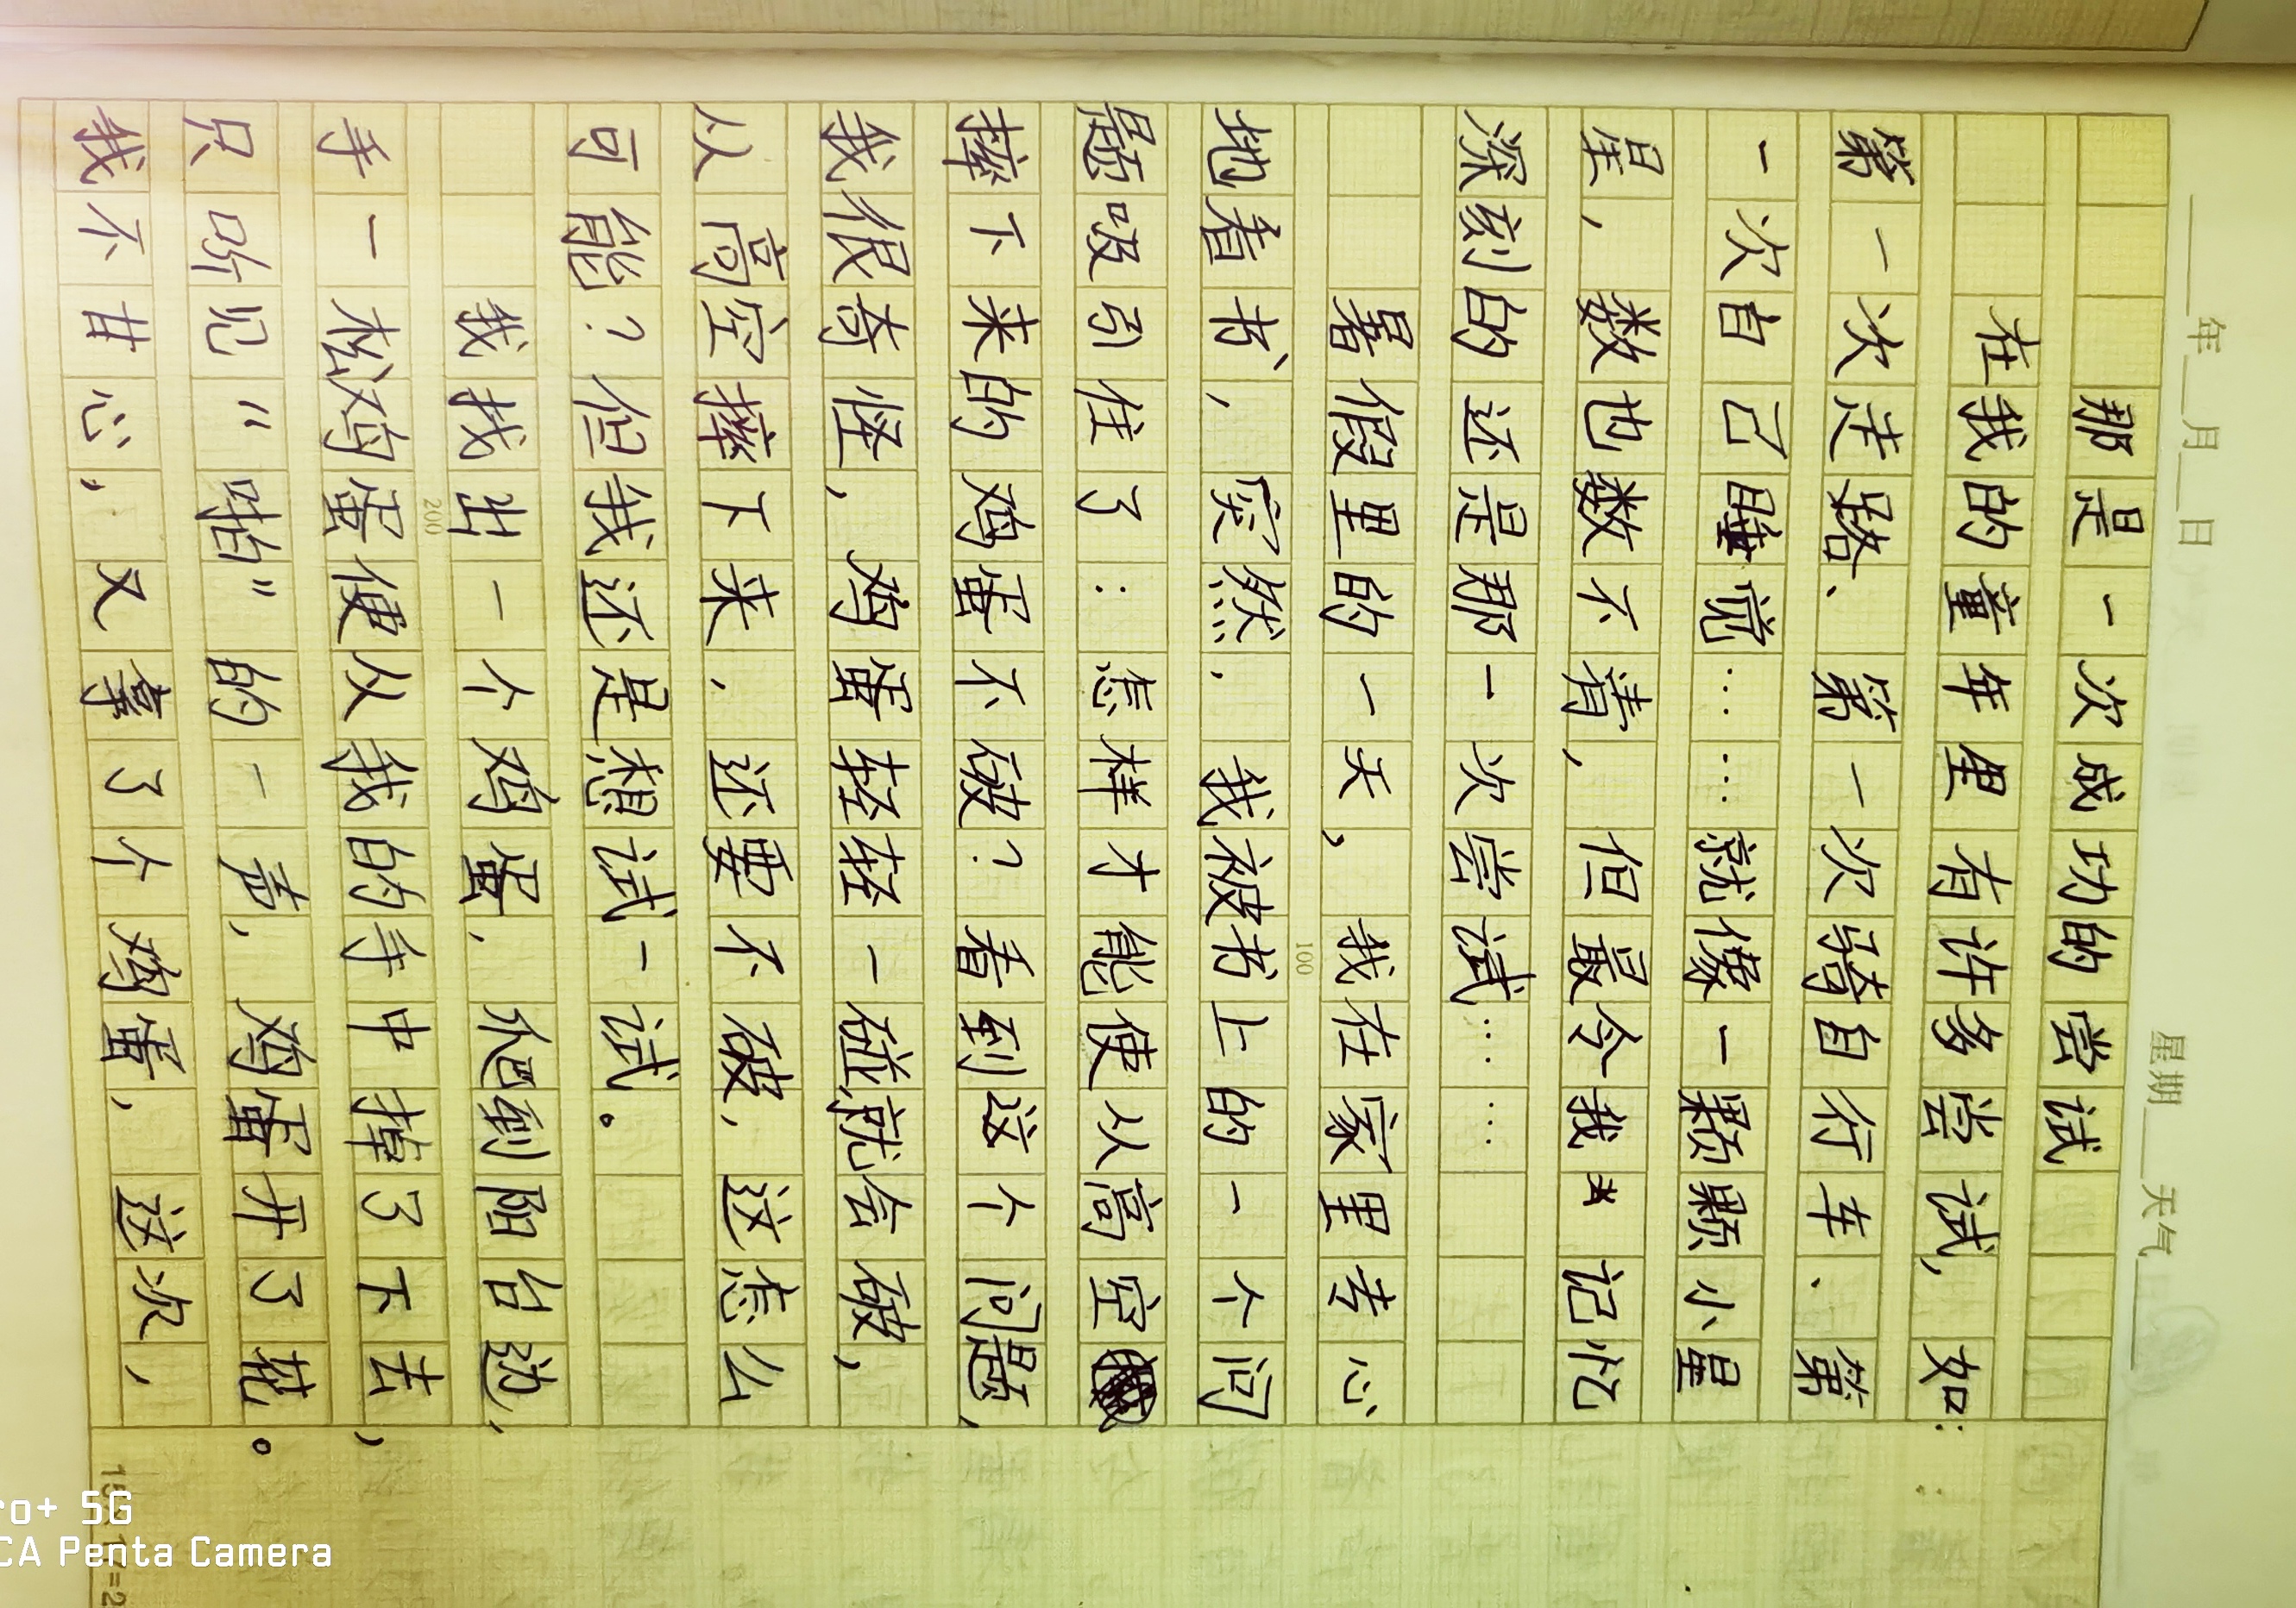 ____年__月__日 星期____天气____
那是一次成功的尝试
在我的童年里有许多尝试,如:
第一次走路、第一次骑自行车、第
一次自己睡觉……就像一颗颗小星
星,数也数不清,但最令我记忆
深刻的还是那一次尝试……
暑假里的一天,我在家里专心
地看书,突然,我被书上的一个问
题吸引住了:怎样才能使从高空
摔下来的鸡蛋不破?看到这个问题,
我很奇怪,鸡蛋轻轻一碰就会破,
从高空摔下来,还要不破,这怎么
可能?但我还是想试一试。
我找出一个鸡蛋,爬到阳台边,
200
手一松鸡蛋便从我的手中掉了下去,
只听见"啪"的一声,鸡蛋开了花。
我不甘心,又拿了个鸡蛋,这次,
100
ro+ 5G
CA Penta Camera